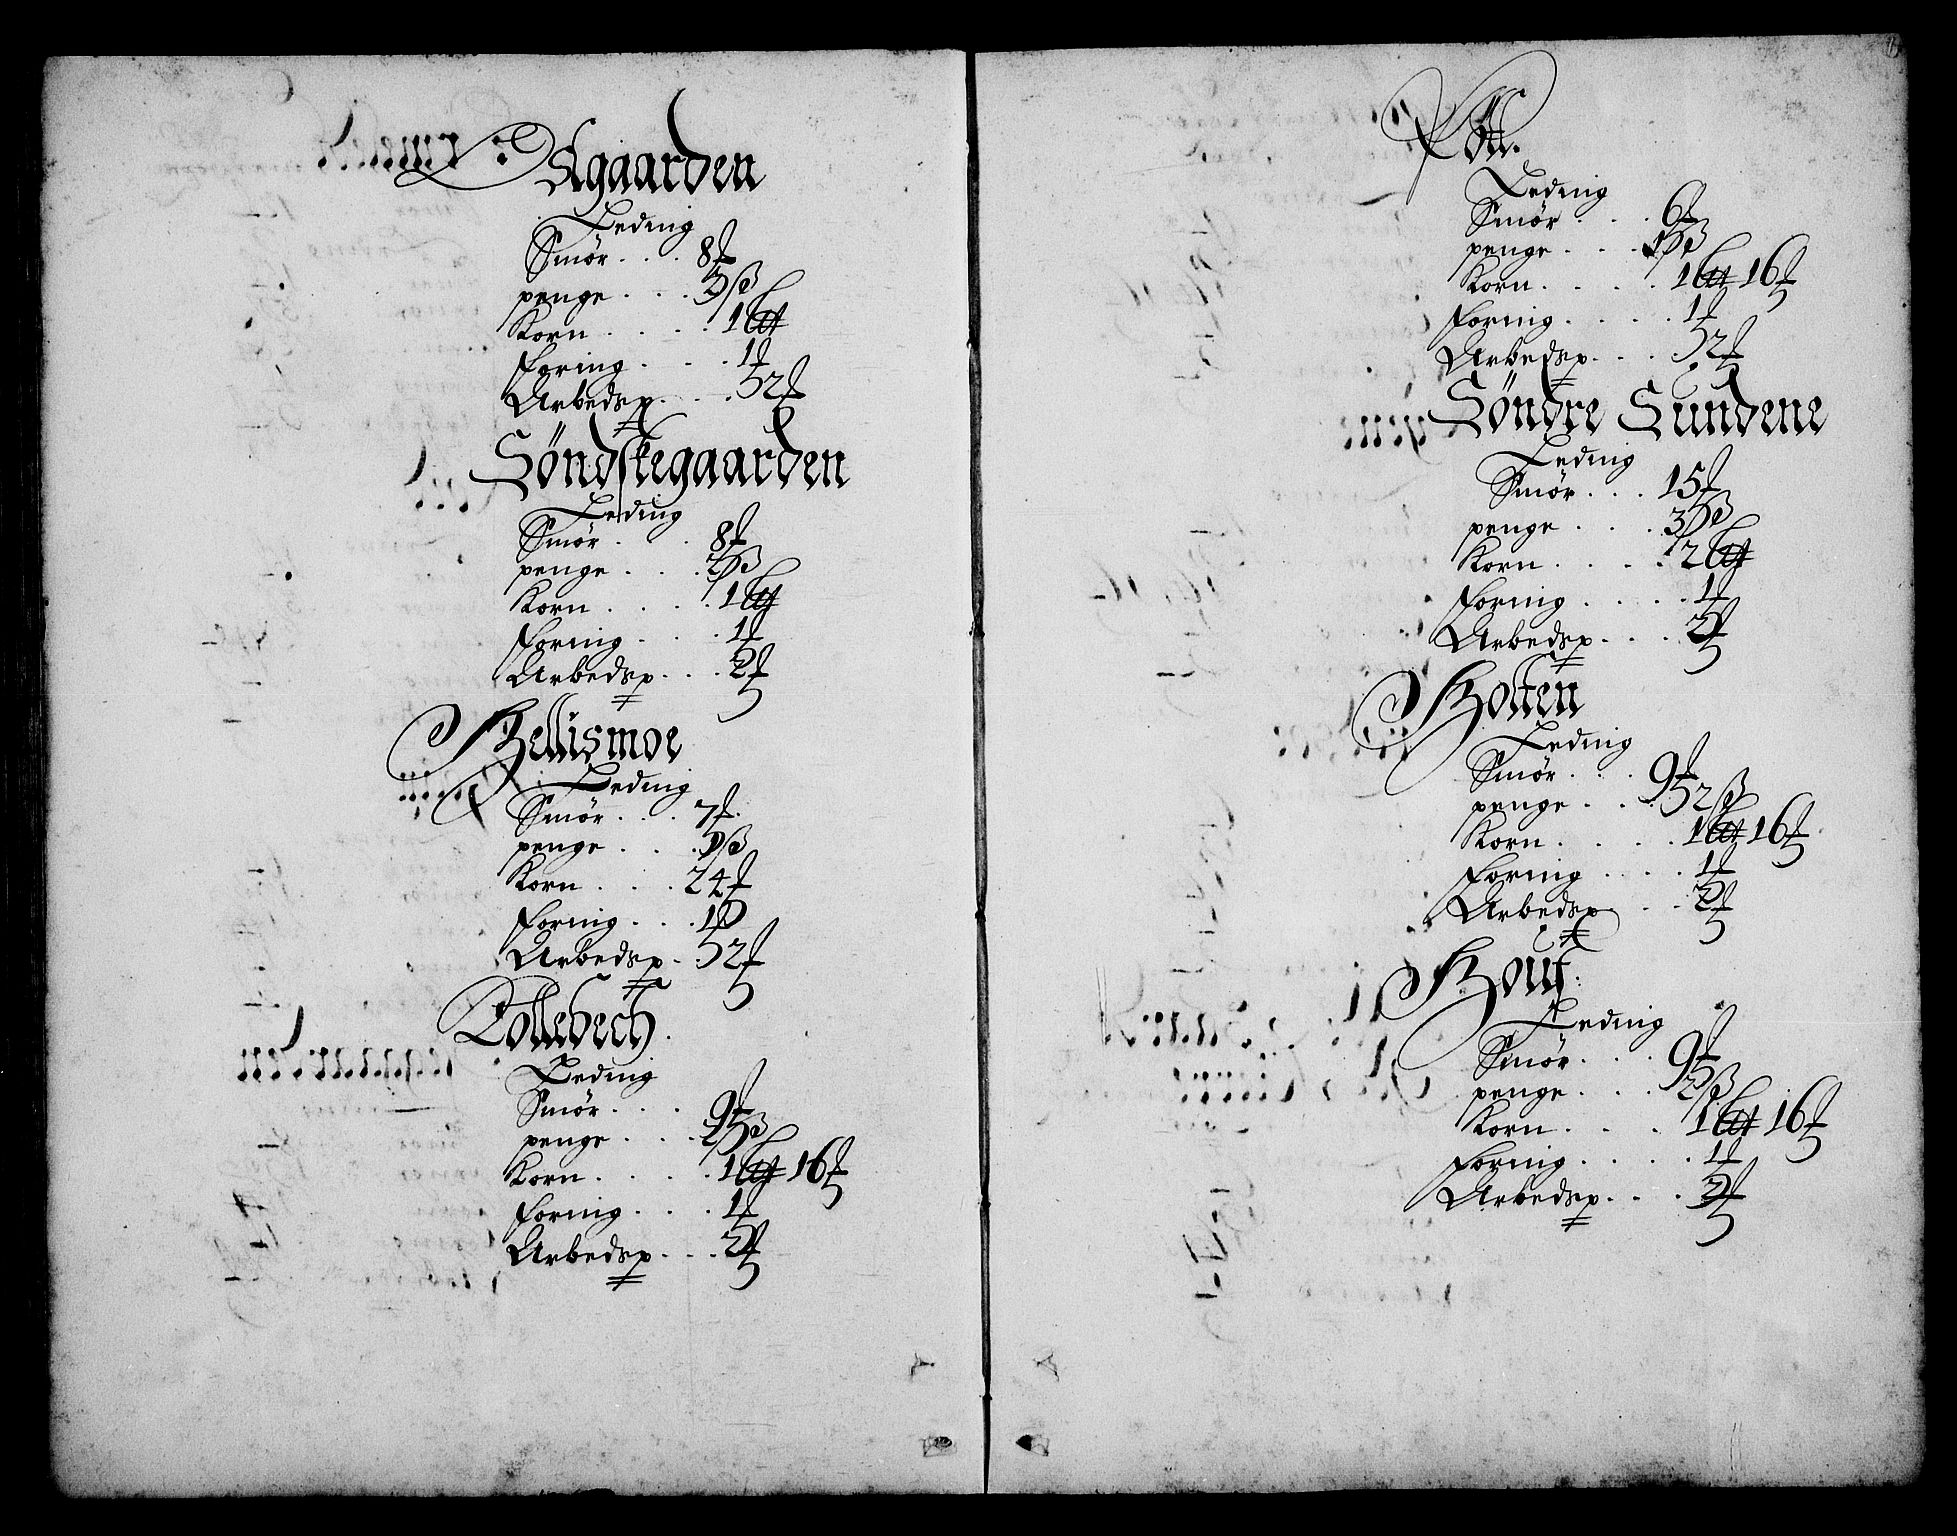 Aagaarden
Leding
Smør . . . 8 ℔
penge . . . ß
Korn . . . . 1
foring . . . 1
Arbedsp. . . 2
Søndskegaarden
Leding
Smør . . . 8 ℔
penge . . . 2 ß
Korn . . . . 1
foring . . . 1
Arbedsp. . . 2
Hellismoe
Leding
Smør . . . 7 ℔.
penge . . . ß
Korn . . . 24 ℔
foring . . . 1
Arbedsp . 2
Tollebech.
Leding
Smør . . . 9 ℔
penge . . . 2 ß
Korn . . . . 1 16 ℔
foring . . . 1
Arbedsp. . . 2
Leding
Smør . . . 6 ℔
penge . . . ß
Korn . . . . 1 16 ℔
foring . . . . 1
Arbedsp. . . . 2
Søndre Sundene
Leding
Smør . . . 15 ℔
penge . . . 3 ß
Korn . . . . 2
foring . . . . 1
Arbedsp. . . . 2
Holten
Leding
Smør . . . 9 ℔
penge . . . 2 ß
Korn . . . . 1 16 ℔
foring . . . . 1
Arbedsp . . 2
Houf:
Leding
Smør . . . 9 ℔
penge . . . 2 ß
Korn . . . . 1 16 ℔
foring . . . . 1
Arbedsp. . . . 2